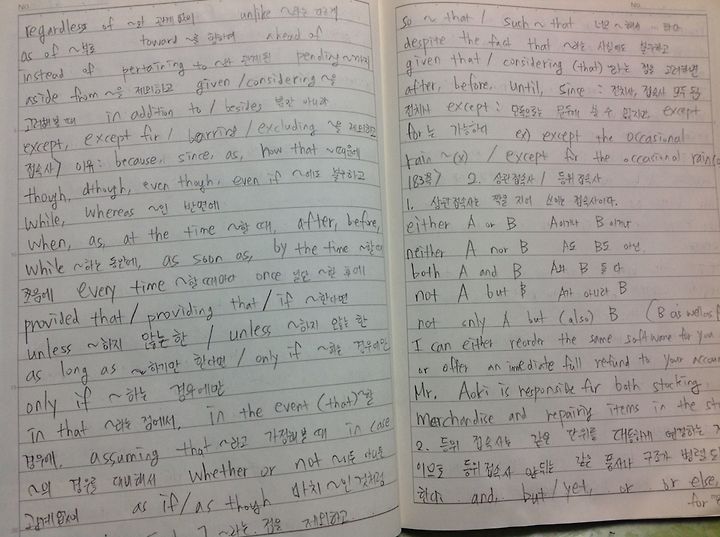 NO.
regardless of ~와 관계없이 unlike ~와는 다르게
as of ~부로 toward ~을 향하여 ahead of
instead of pertaining to ~와 관계된 pending ~까지
aside from ~을 제외하고 given/considering ~을
고려해볼 때 in addition to / besides 뿐만 아니라
except, except for / barring / excluding ~을 제외하고
접속사> 이유: because, since, as, now that ~때문에
though, although, even though, even if ~에도 불구하고
while, whereas ~인 반면에
when, as, at the time ~할 때, after, before,
while ~하는 동안에, as soon as, by the time ~할때
쯤에 every time ~할 때마다 once 일단 ~한 후에
provided that / providing that / if ~한다면
unless ~하지 않는한 / unless ~하지 않는 한
as long as ~하기만 한다면 / only if ~하는 경우에만
only if ~하는 경우에만
in that ~라는 점에서, in the event (that) ~할
경우에, assuming that ~라고 가정해볼 때 in case
~의 경우를 대비해서 whether or not
관계없이 as if / as though 마치 ~인 것처럼
~라는 점을 제외하고
NO.
so ~ that / such ~ that 너무 ~해서 ... 하다
despite the fact that ~라는 사실에도 불구하고
given that / considering (that) ~라는 점을 고려하면
after, before, until, since : 전치사, 접속사 모두 됨
전치사 except : 문두에 쓸 수 없지만, except
for는 가능하다 ex) except the occasional
rain ~(v) / except for the occasional rain
183쪽> 2. 상관접속사 / 등위접속사
1. 상관접속사는 짝을 지어 쓰이는 접속사이다.
either A or B A이거나 B이거나
neither A nor B A도 B도 아닌
both A and B A와 B 둘 다
not A but B A가 아니라 B
not only A but (also) B (B as well as
I can either reorder the same software for you
or offer an immediate full refund to your account
Mr. Aoki is responsible for both stocking
merchandise and repairing items in the
2. 등위 접속사는 같은 단위를 대등하게 연결하는
이므로 등위접속사 앞뒤는 같은 품사와 구조가 병렬
한다. and, but/yet, or or else,
for